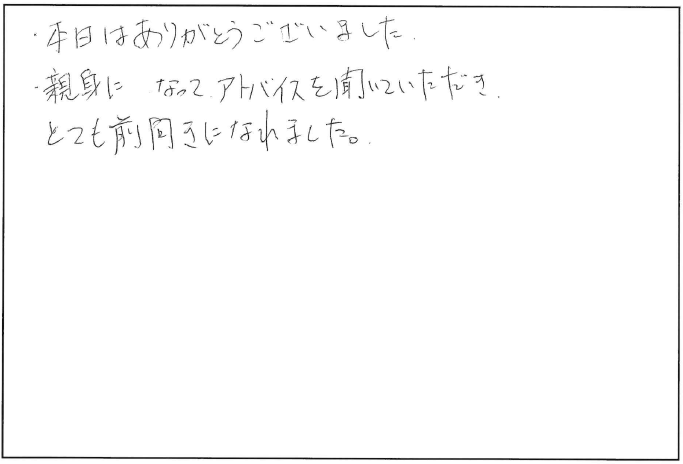 ・本日はありがとうございました.
・親身に なって アドバイスを聞いていただき.
とても前向きになれました。